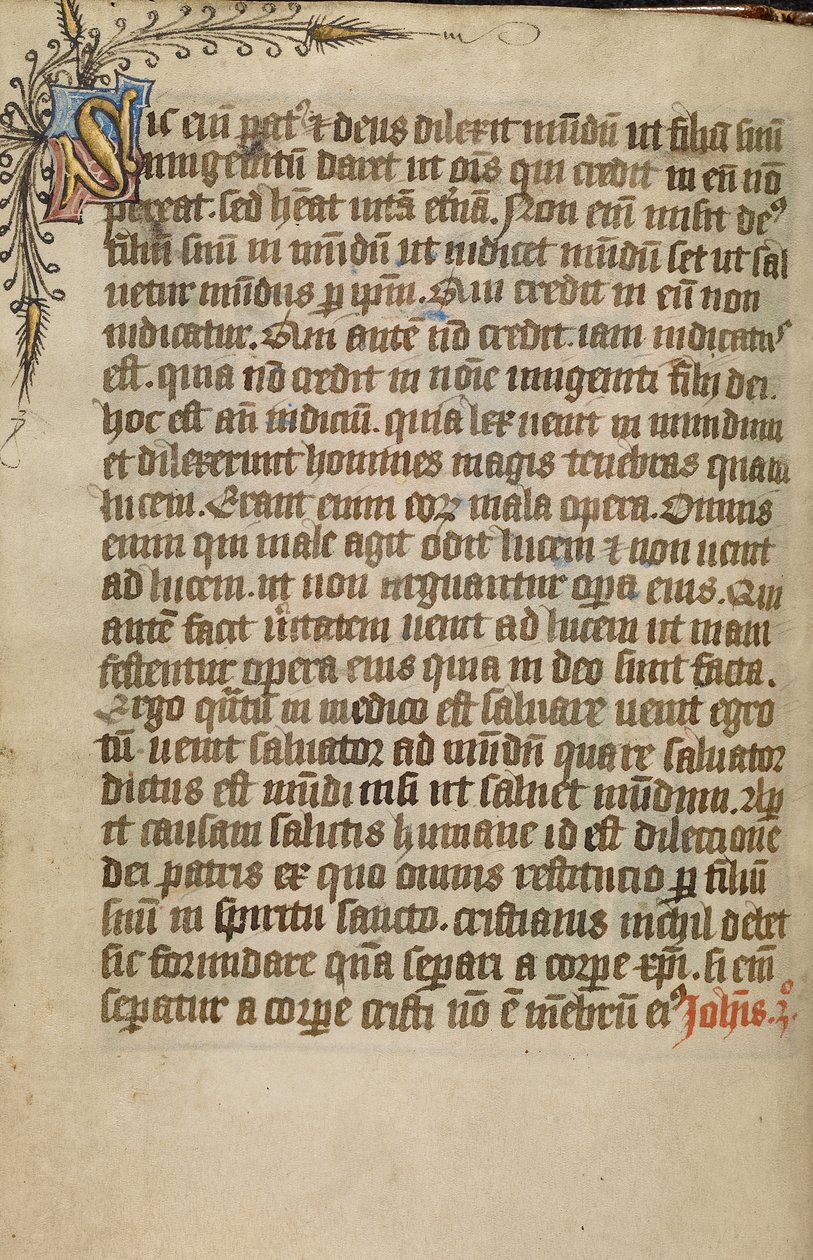 Sic eni̅ pat᷒ ⁊ deus dilexit mu̅du̅ ut filiu̅ suu̅
unigenitu̅ daret ut oi̅s qui credit in eu̅ no̅
pereat. sed he̅at uita̅ et̾na̅. Non eni̅ misit deꝰ
filiu̅ suu̅ in mu̅du̅ ut iudicet mu̅du̅ set ut sal
uetur mu̅dus ꝑ ip̅m. Qui credit in eu̅ non
iudicatur. Qui aute̅ no̅ credit. iam iudicatuꝰ
est. quia no̅ credit in no̅ie unigeniti filij dei.
hoc est au̅ iudiciu̅. quia lex uenit in mundum
et dilexerunt homines magis tenebras quam
lucem. Erant enim eoꝝ mala opera. Omnis
enim qui male agit odit lucem ⁊ non uenit
ad lucem. ut non arguantur oꝑa eius. Qui
aute̅ facit u̾itatem uenit ad lucem ut mani
festentur opera eius quia in deo sunt facta.
Ergo qͣ̅tu̅ in medico est saluare uenit egro
tu̅ uenit saluator ad mu̅du̅ quare saluator
dictus est mu̅di nisi ut saluet mu̅dum. Aꝑ
it causam salutis humane id est dileccione̅
dei patris ex quo omnis restitucio ꝑ filiu̅
suu̅ in spiritu sancto. cristianus nichil debet
sic formidare qua̅ separi a corꝑe xp̅i. si eni̅
seꝑatur a corꝑe cristi no̅ e̅ me̅bru̅ eiꝰ Joh̅is. 2º.